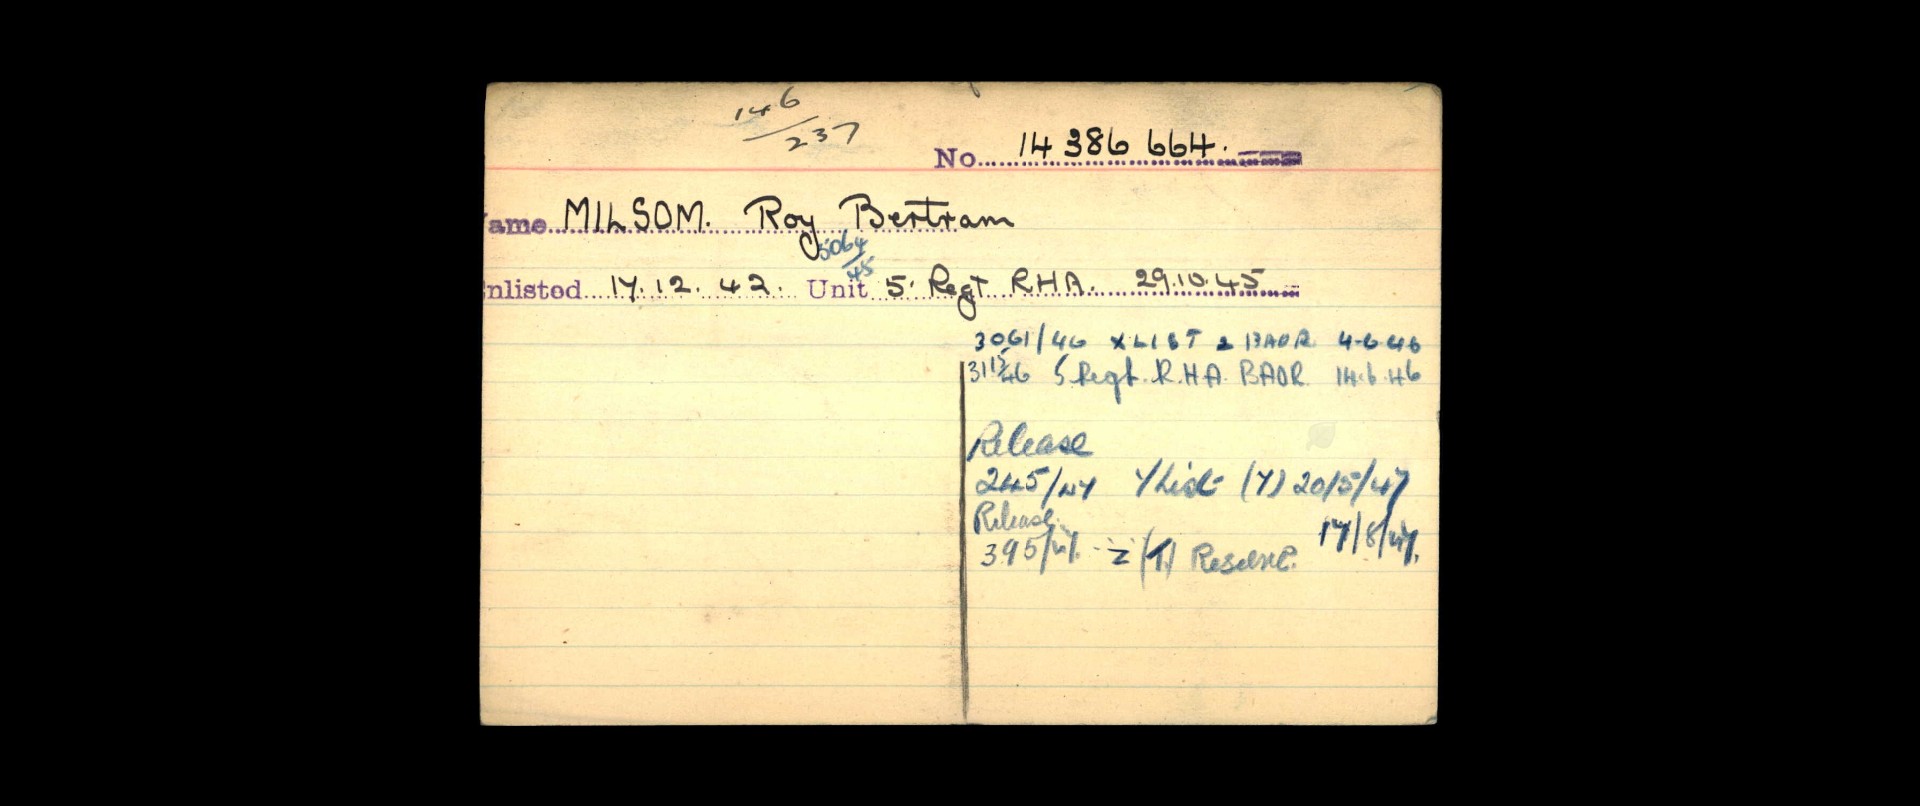 146/237
No. 14386664.
ame MILSOM. Roy Bertram
5064/45
nlisted 17.12.42. Unit 5 Regt RHA. 29.10.45
3061/46 X LIST 2 BAOR 4-6-46
3115/46 5 Regt. R.H.A. BAOR. 14.6.46
Release
245/47 Y List (Y) 20/5/47
Release
395/47. Z (T) Reserve. 17/8/47.